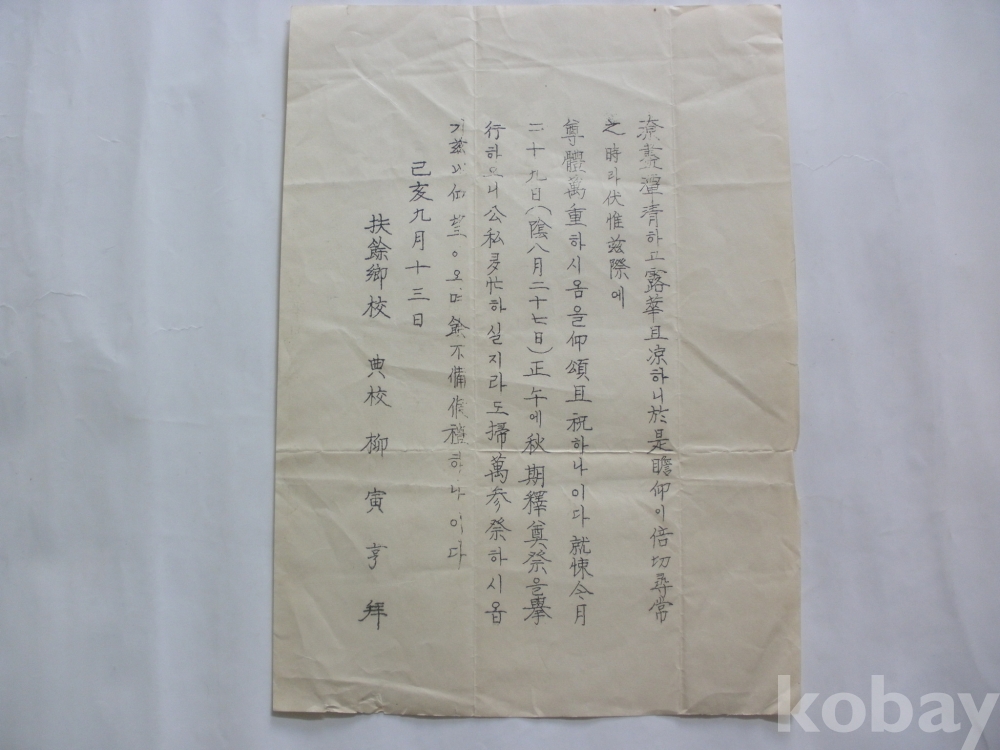 潦炎潭清하고 露華且凉하니 於是瞻仰이 倍切尋常
之時라 伏惟玆際에
尊體萬重하시옴을 仰頌且祝하나이다 就悚今月
二十九日(陰八月二十七日)正午에 秋期釋奠祭을 擧
行하오니 公私多忙하실지라도 掃萬参祭하시옵
기 玆以仰望하오며 餘不備候禮하나이다
己亥九月十三日
扶餘鄕校 典校 柳寅亨 拜
kobay